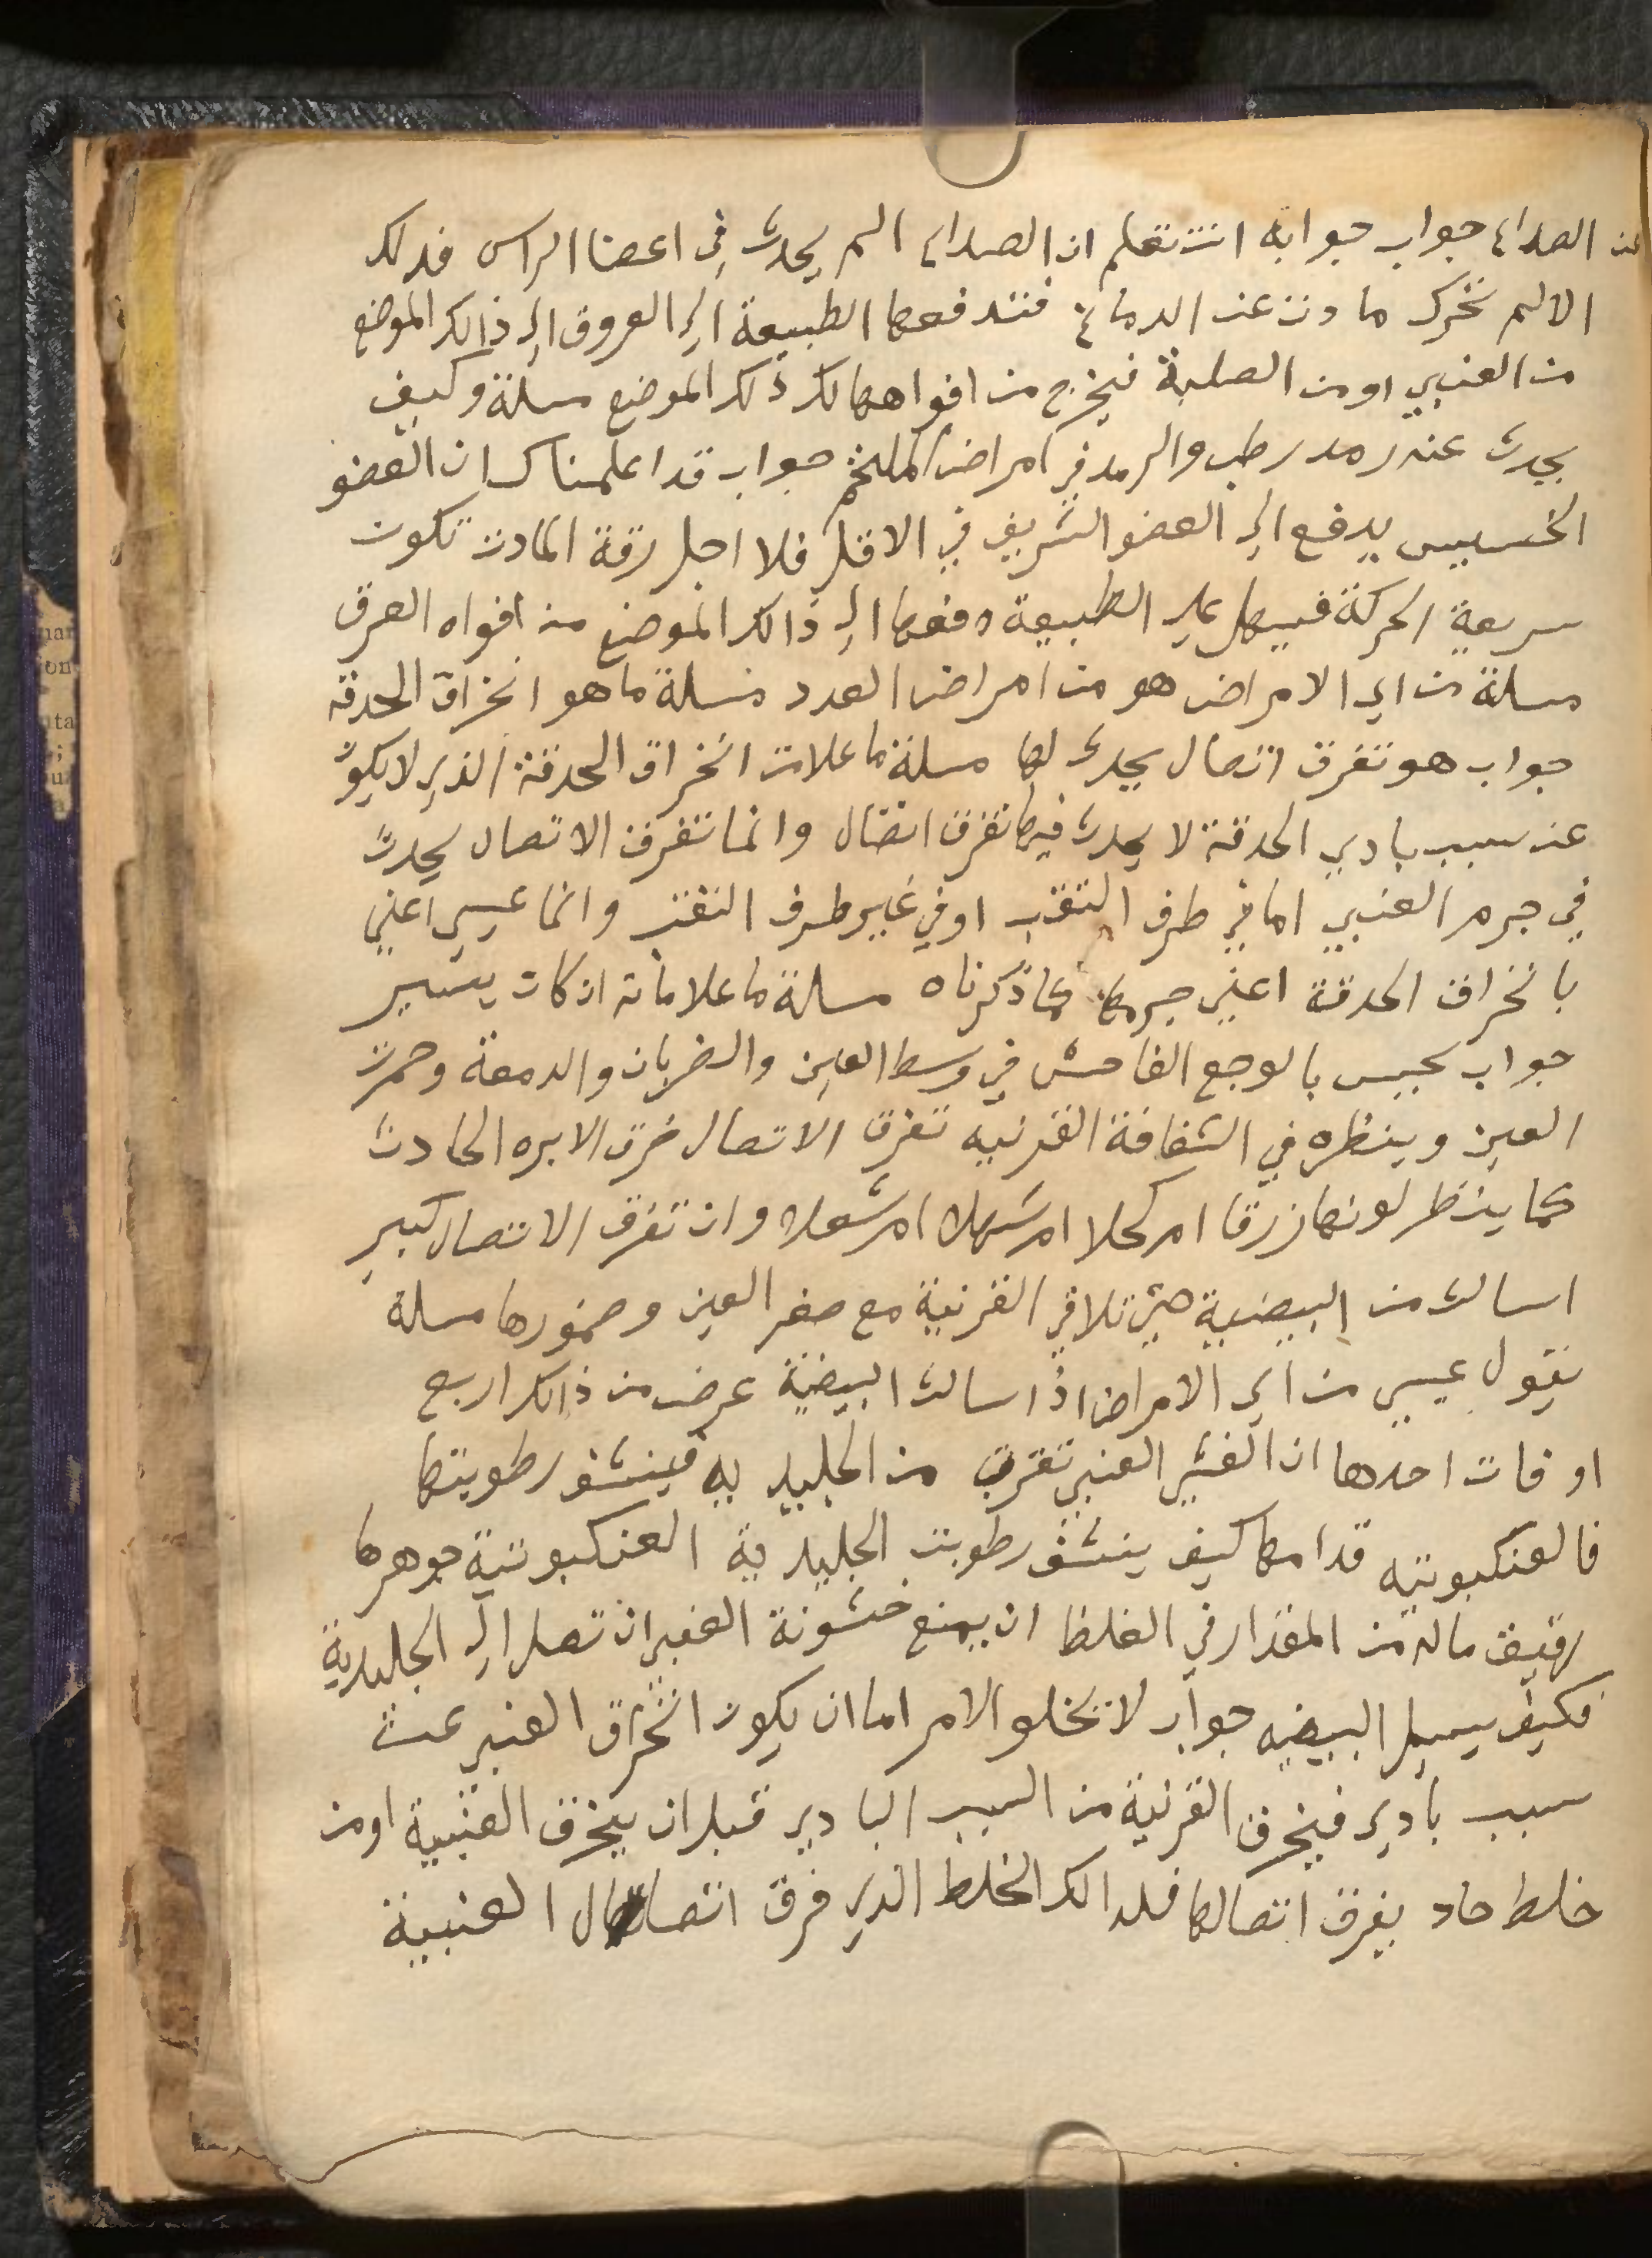 عن الصداع جواب جوابه انت تعلم ان الصداع الم يحدث في اعضا الراس فدلك
الالم تحرك مادت عن الدماغ فتدفعها الطبيعة الى العروق الى ذالك الموضع
من العنبي او من الصلبة فيخرج من افواهها لك ذلك الموضع مسلة وكيف
يحدث عنه رمد رطب والرمد في امراض الملتحم جواب قد اعلمناك ان العضو
الخسيس يدفع الى العضو الشريف في الاقل فلا اجل رقة المادت تكون
سريعة الحركة فسهل على الطبيعة دفعها الى ذالك الموضع من افواه العرق
مسلة من اي الامراض هو من امراض العدد مسلة ما هو انخراق الحدقة
جواب هو تفرق اتصال يحدث لها مسلة ما علامت انخراق الحدقة الذي لا يكون
عن سبب بادي الحدقة لا يحدث فيها تفرق اتصال وانما تفرق الاتصال يحدث
في جرم العنبي اما في طرف الثقب او في غير طرف الثقب وانما عيسى اعني
بانخراق الحدقة اعني جرمها كما ذكرناه مسلة ما علاماته ان كان يسير
جواب يحبس بالوجع الفاحش في وسط العين والضربان والدمعة وحمرت
العين وينظره في الشفافة القرنيه تفرق الاتصال خرق الابره الحادث
كما ينظر لونها زرقا ام كحلا ام شهلا ام شعلا وان تفرق الاتصال كبير
اسالت من البيضية حتى تلاقي القرنية مع صغر العين وضمورها مسلة
يقول عيسى من اي الامراض اذا سالت البيضية عرض من ذالك اربع
اوفات احدها ان القشر العنبي تقرب من الجليديه فينشف رطوبتها
فالعنكبوتيه قدامها كيف ينشف رطوبت الجليدية العنكبوتية جوهرها
رقيق ماله من المقدار في الغلظ ان يمنع خشونة العنبي ان تصل الى الجليدية
فكيف يسيل البيضيه جواب لا يخلوا الامر اما ان يكون انخراق العنبي عن
سبب بادي فينخرق القرنية من السبب البادي قبل ان ينخرق العنبية او من
خلط حاد يفرق اتصالها فلدالك الخلط الذي فرق اتصال العنبية